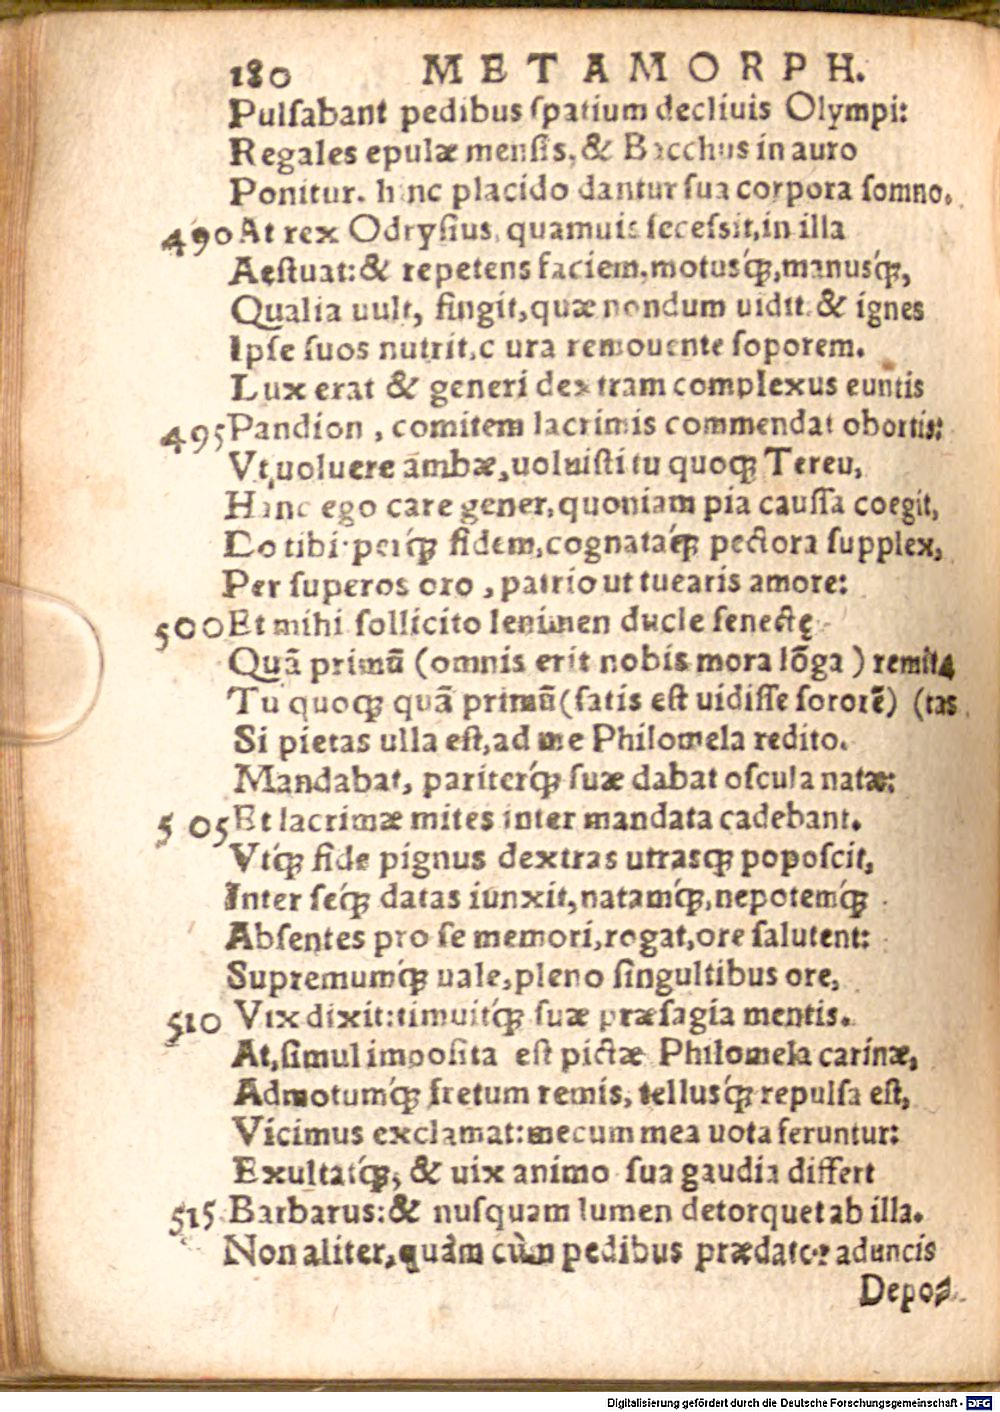 180 METAMORPH.
Pulſabant pedibus ſpatium decliuis Olympi:
Regales epulæ menſis, & Bacchus in auro
Ponitur. hinc placido dantur ſua corpora ſomno.
490 At rex Odryſius, quamuis ſeceſsit, in illa
Aeſtuat: & repetens faciem, motusq́ꝫ, manusq́ꝫ,
Qualia uult, fingit, quæ nondum uidit. & ignes
Ipſe ſuos nutrit, c ura remouente ſoporem.
Lux erat & generi dextram complexus euntis
495 Pandion, comitem lacrimis commendat obortis:
Vt uoluere ambæ, uoluiſti tu quoqꝫ Tereu,
Hanc ego care gener, quoniam pia cauſſa coegit,
Do tibi: perq́ꝫ fidem, cognataq́ꝫ pectora ſupplex,
Per ſuperos oro, patrio ut tuearis amore:
500 Et mihi ſollicito lenimen ducle ſenectę
Quā primū (omnis erit nobis mora lōga) remit⸗
Tu quoqꝫ quā primū (ſatis eſt uidiſſe ſororē) (tas
Si pietas ulla eſt, ad me Philomela redito.
Mandabat, pariterq́ꝫ ſuæ dabat oſcula natæ:
505 Et lacrimæ mites inter mandata cadebant.
Vtq́ꝫ fide pignus dextras utrasqꝫ popoſcit,
Inter ſeq́ꝫ datas iunxit, natamq́ꝫ, nepotemq́ꝫ
Abſentes pro ſe memori, rogat, ore ſalutent:
Supremumq́ꝫ uale, pleno ſingultibus ore,
510 Vix dixit: timuitq́ꝫ ſuæ præſagia mentis.
At, ſimul impoſita eſt pictæ Philomela carinæ,
Admotumq́ꝫ fretum remis, tellusq́ꝫ repulſa eſt,
Vicimus exclamat: mecum mea uota feruntur:
Exultatq́ꝫ, & uix animo ſua gaudia differt
515 Barbarus: & nuſquam lumen detorquet ab illa.
Non aliter, quàm cùm pedibus prædator aduncis
Depo⸗
Digitalisierung gefördert durch die Deutsche Forschungsgemeinschaft - DFG